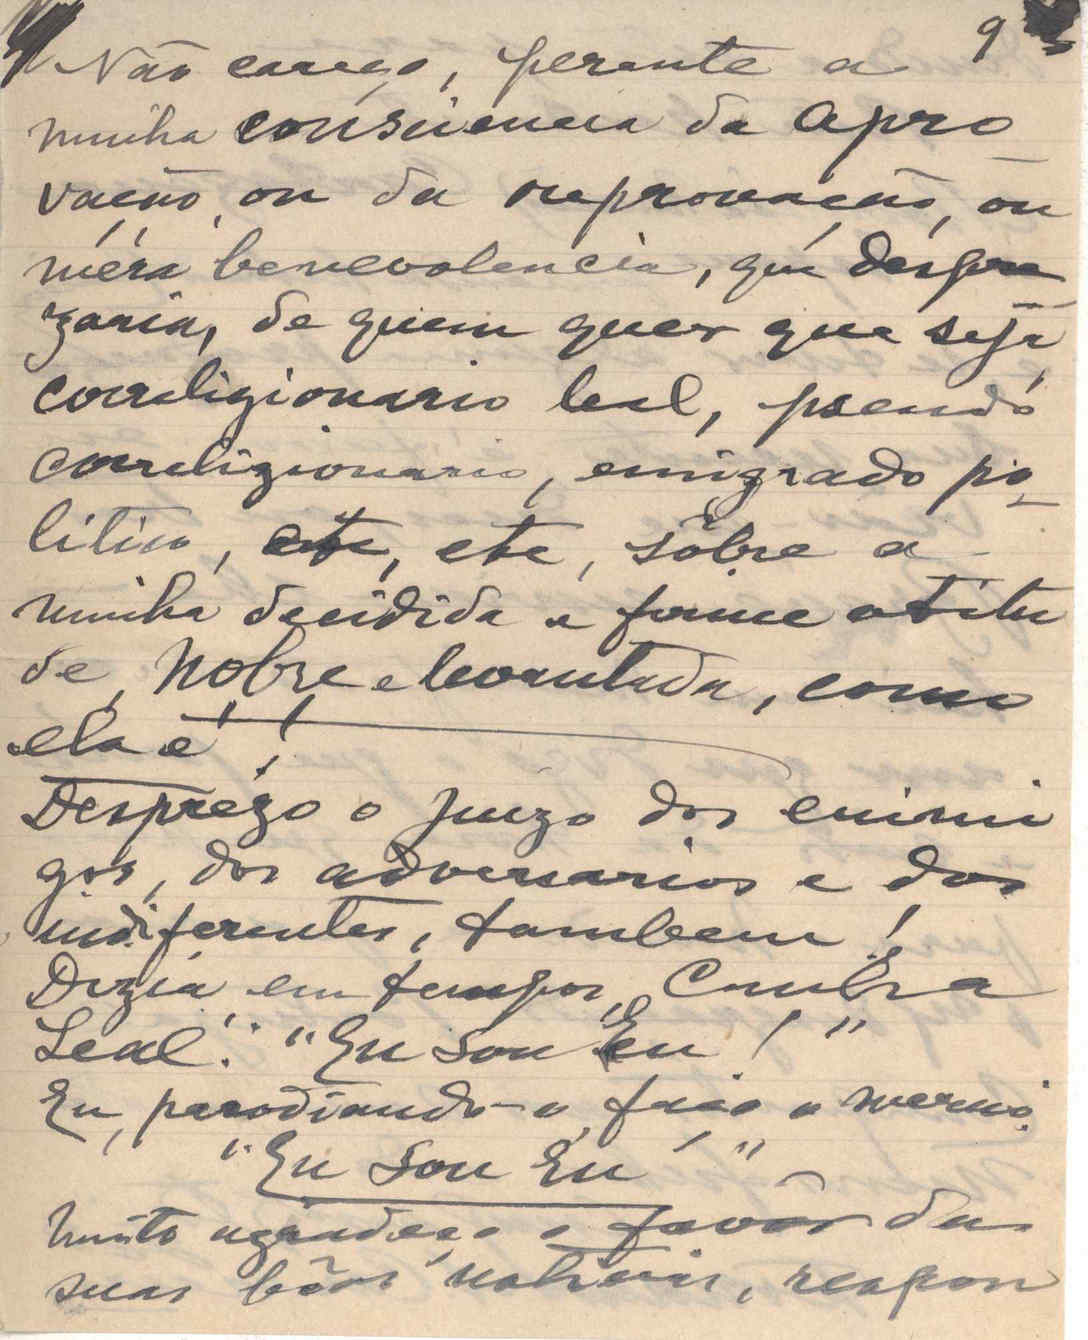 9
Não careço, perante a
minha consciencia da apro
vação, ou da reprovação, ou
méra benevolencia, que despre
zaria, de quem quer que seja,
correligionario leal, pseudo
correligionario, emigrado po-
litico, etc, etc, sôbre a
minha decidida e firme atitu
de, nobre e levantada, como
ela é!
Desprézo o juizo dos enimi
gos, dos adversarios e dos
indiferentes, tambem!
Dizia em tempos, Cunha
Leal: "Eu sou Eu!"
Eu, parodiando-o, faço o mesmo:
"Eu sou Eu!"
Muito agradeço o favôr das
suas bôas noticias, respon